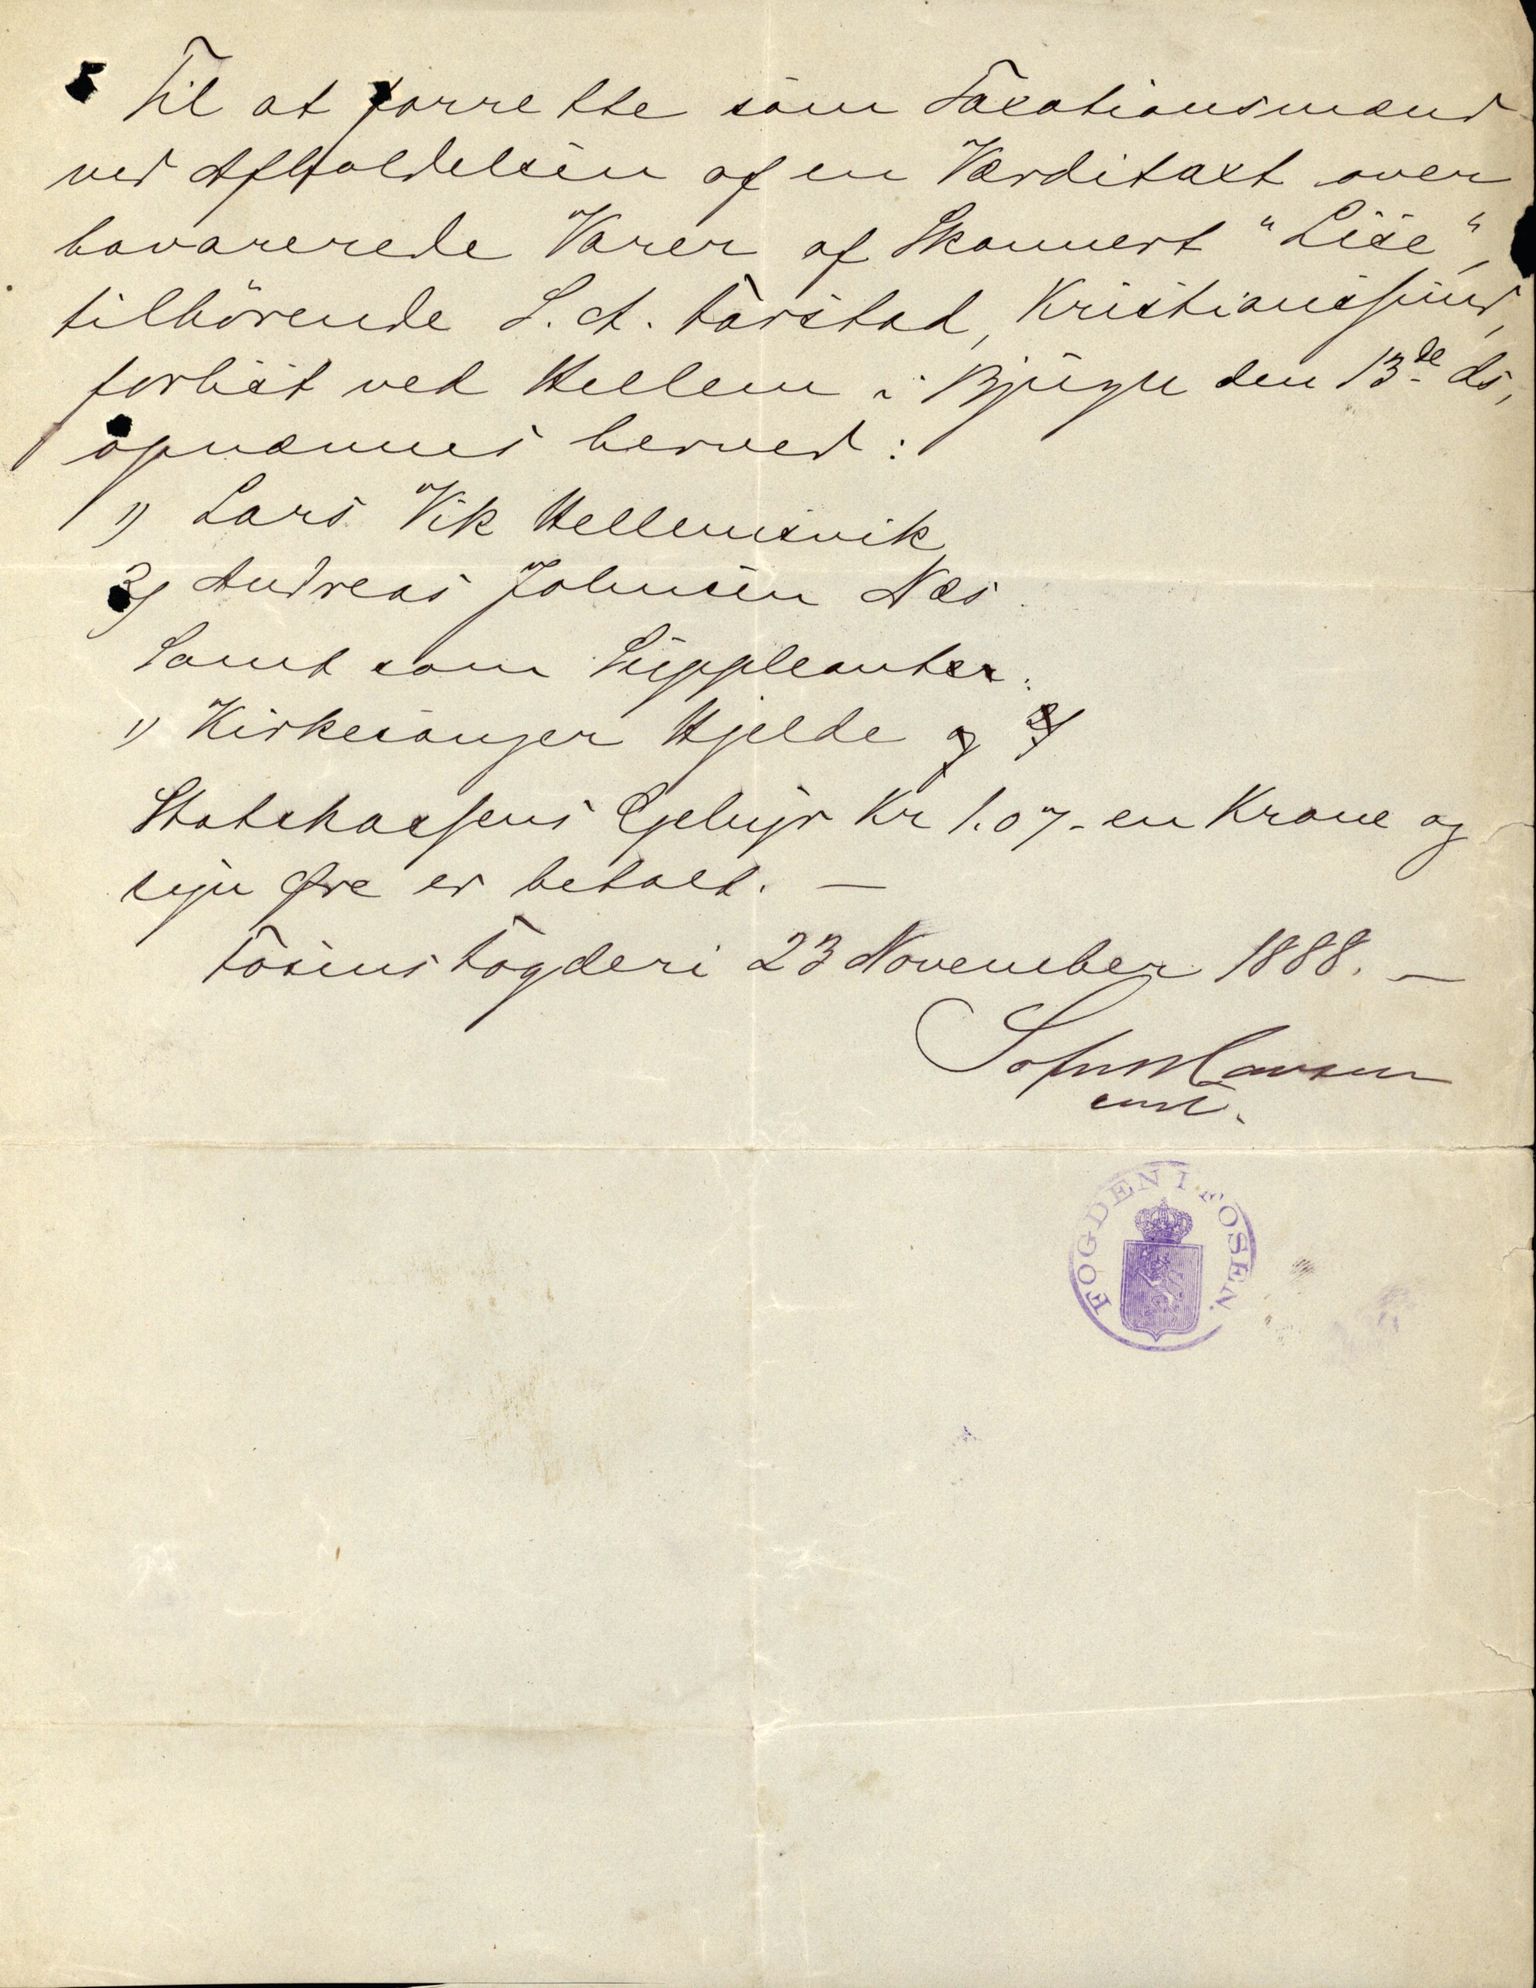 Til at forrette som Taxationsmænd
ved Afholdelsen af en Værditaxt over
havarerede Varer af Skonnert "Lise",
tilhörende L. A. Farstad, Kristianssund,
forlist ved Hellem i Bjugn den 13de ds,
opnævnes herved:
1) Lars Vik Hellemsvik
2) Andreas Johnsen Næs.
Samt som Suppleanter:
1) Kirkesanger Hjelde og 2)
Statskassens Gebyr Kr 1.07 - en Krone og
syv Øre er betalt. —
Fosens Fogderi 23 November 1888. —
const.
FOGDEN I FOSEN.